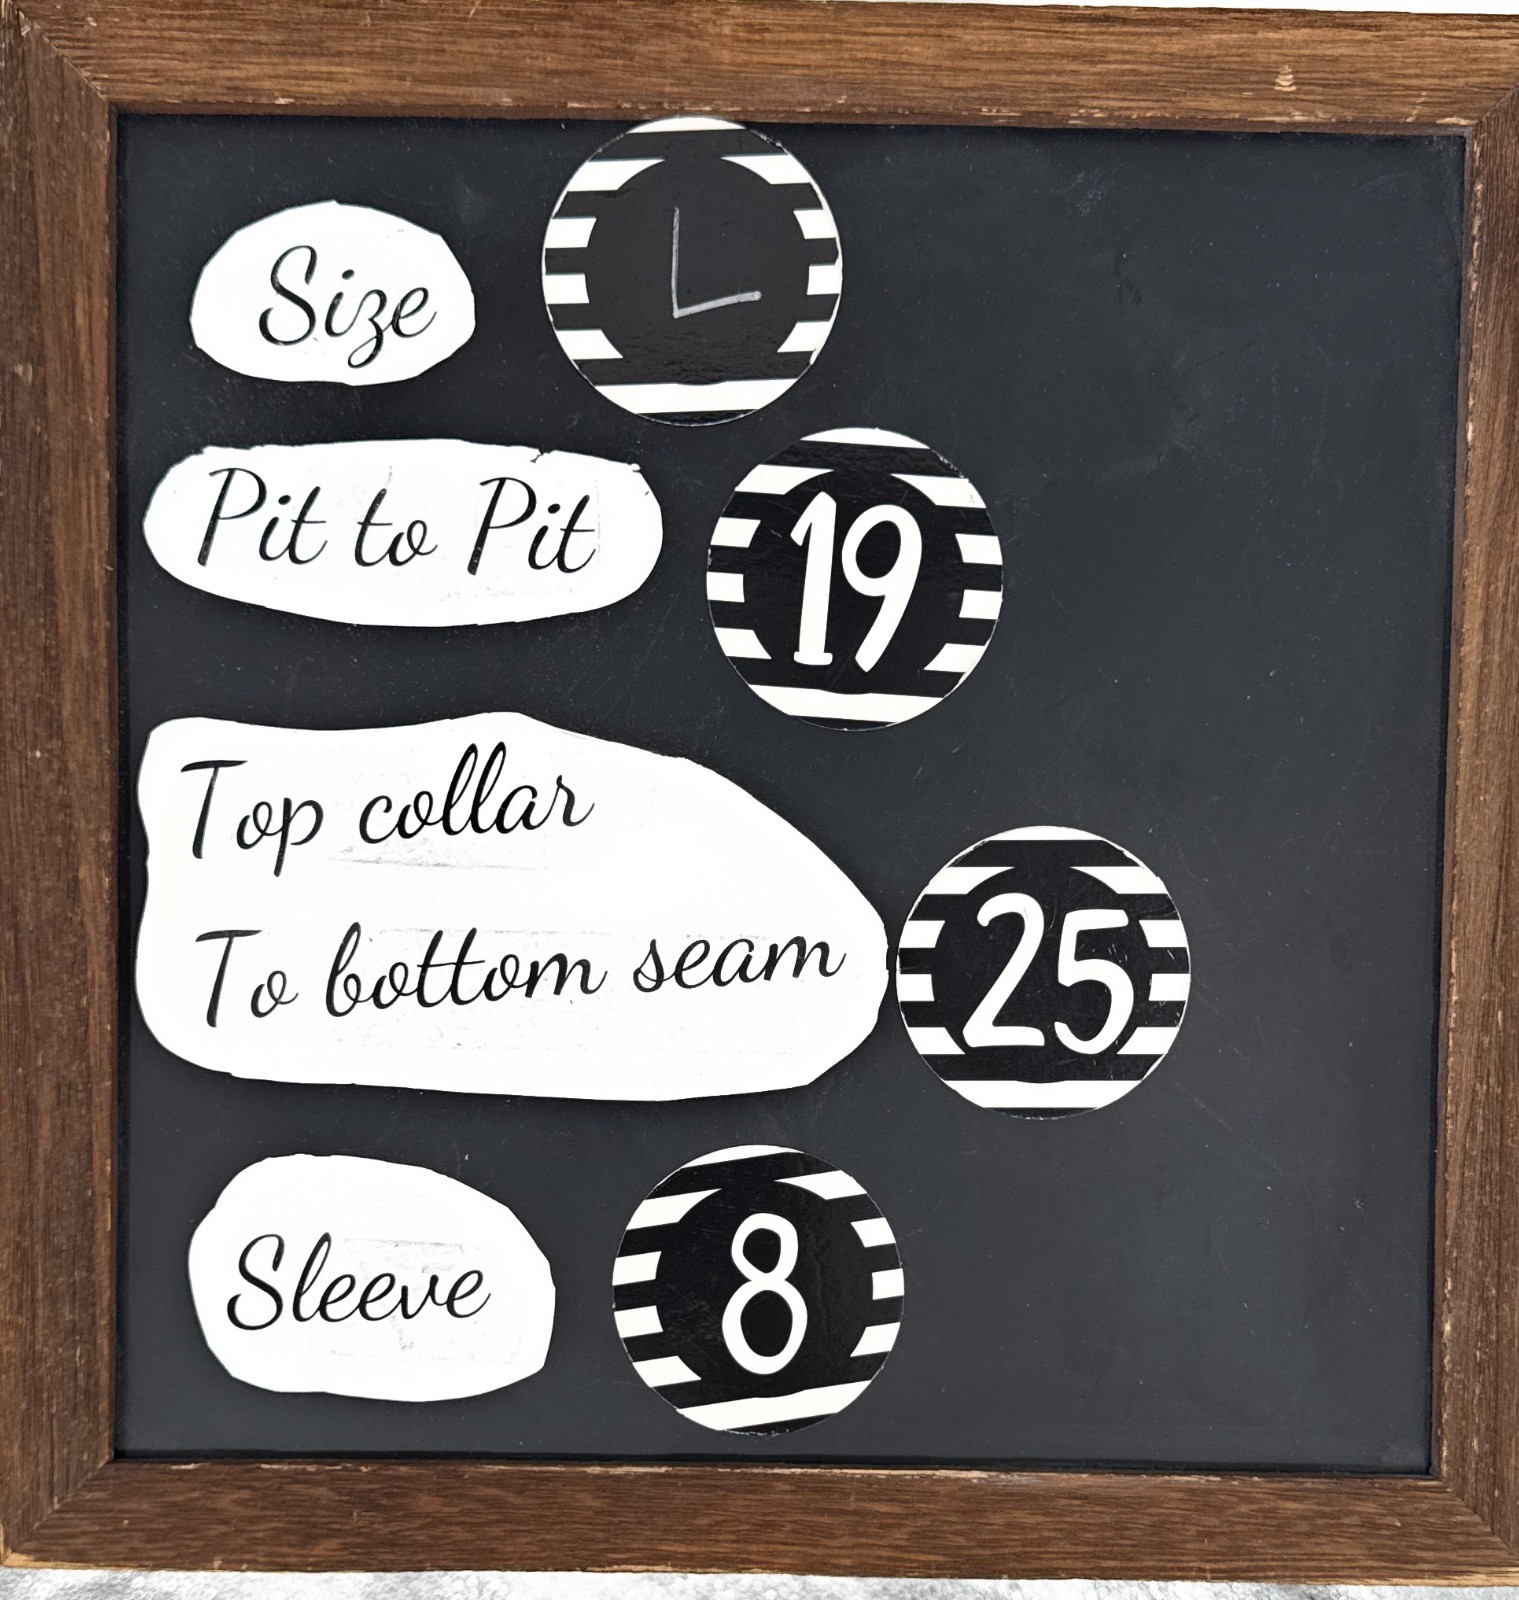 Size L
Pit to Pit 19
Top collar
To bottom seam 25
Sleeve 8